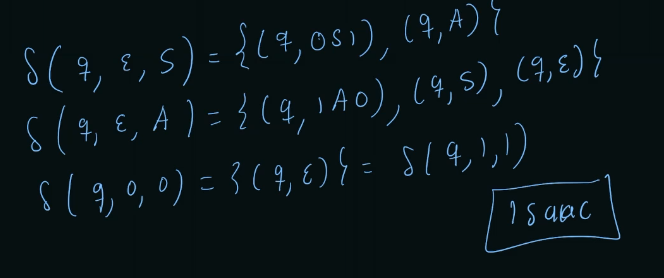 δ(q, ε, S) = {(q, 0S1), (q, A)}
δ(q, ε, A) = {(q, 1A0), (q, S), (q, ε)}
δ(q, 0, 0) = {(q, ε)} = δ(q, 1, 1)
Isaac